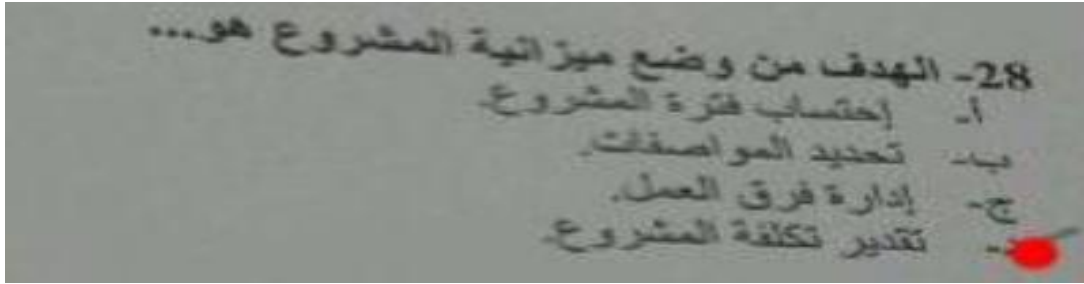 28- الهدف من وضع ميزانية المشروع هو...
أ- إحتساب فترة المشروع.
ب- تحديد المواصفات.
ج- إدارة فرق العمل.
د- تقدير تكلفة المشروع.